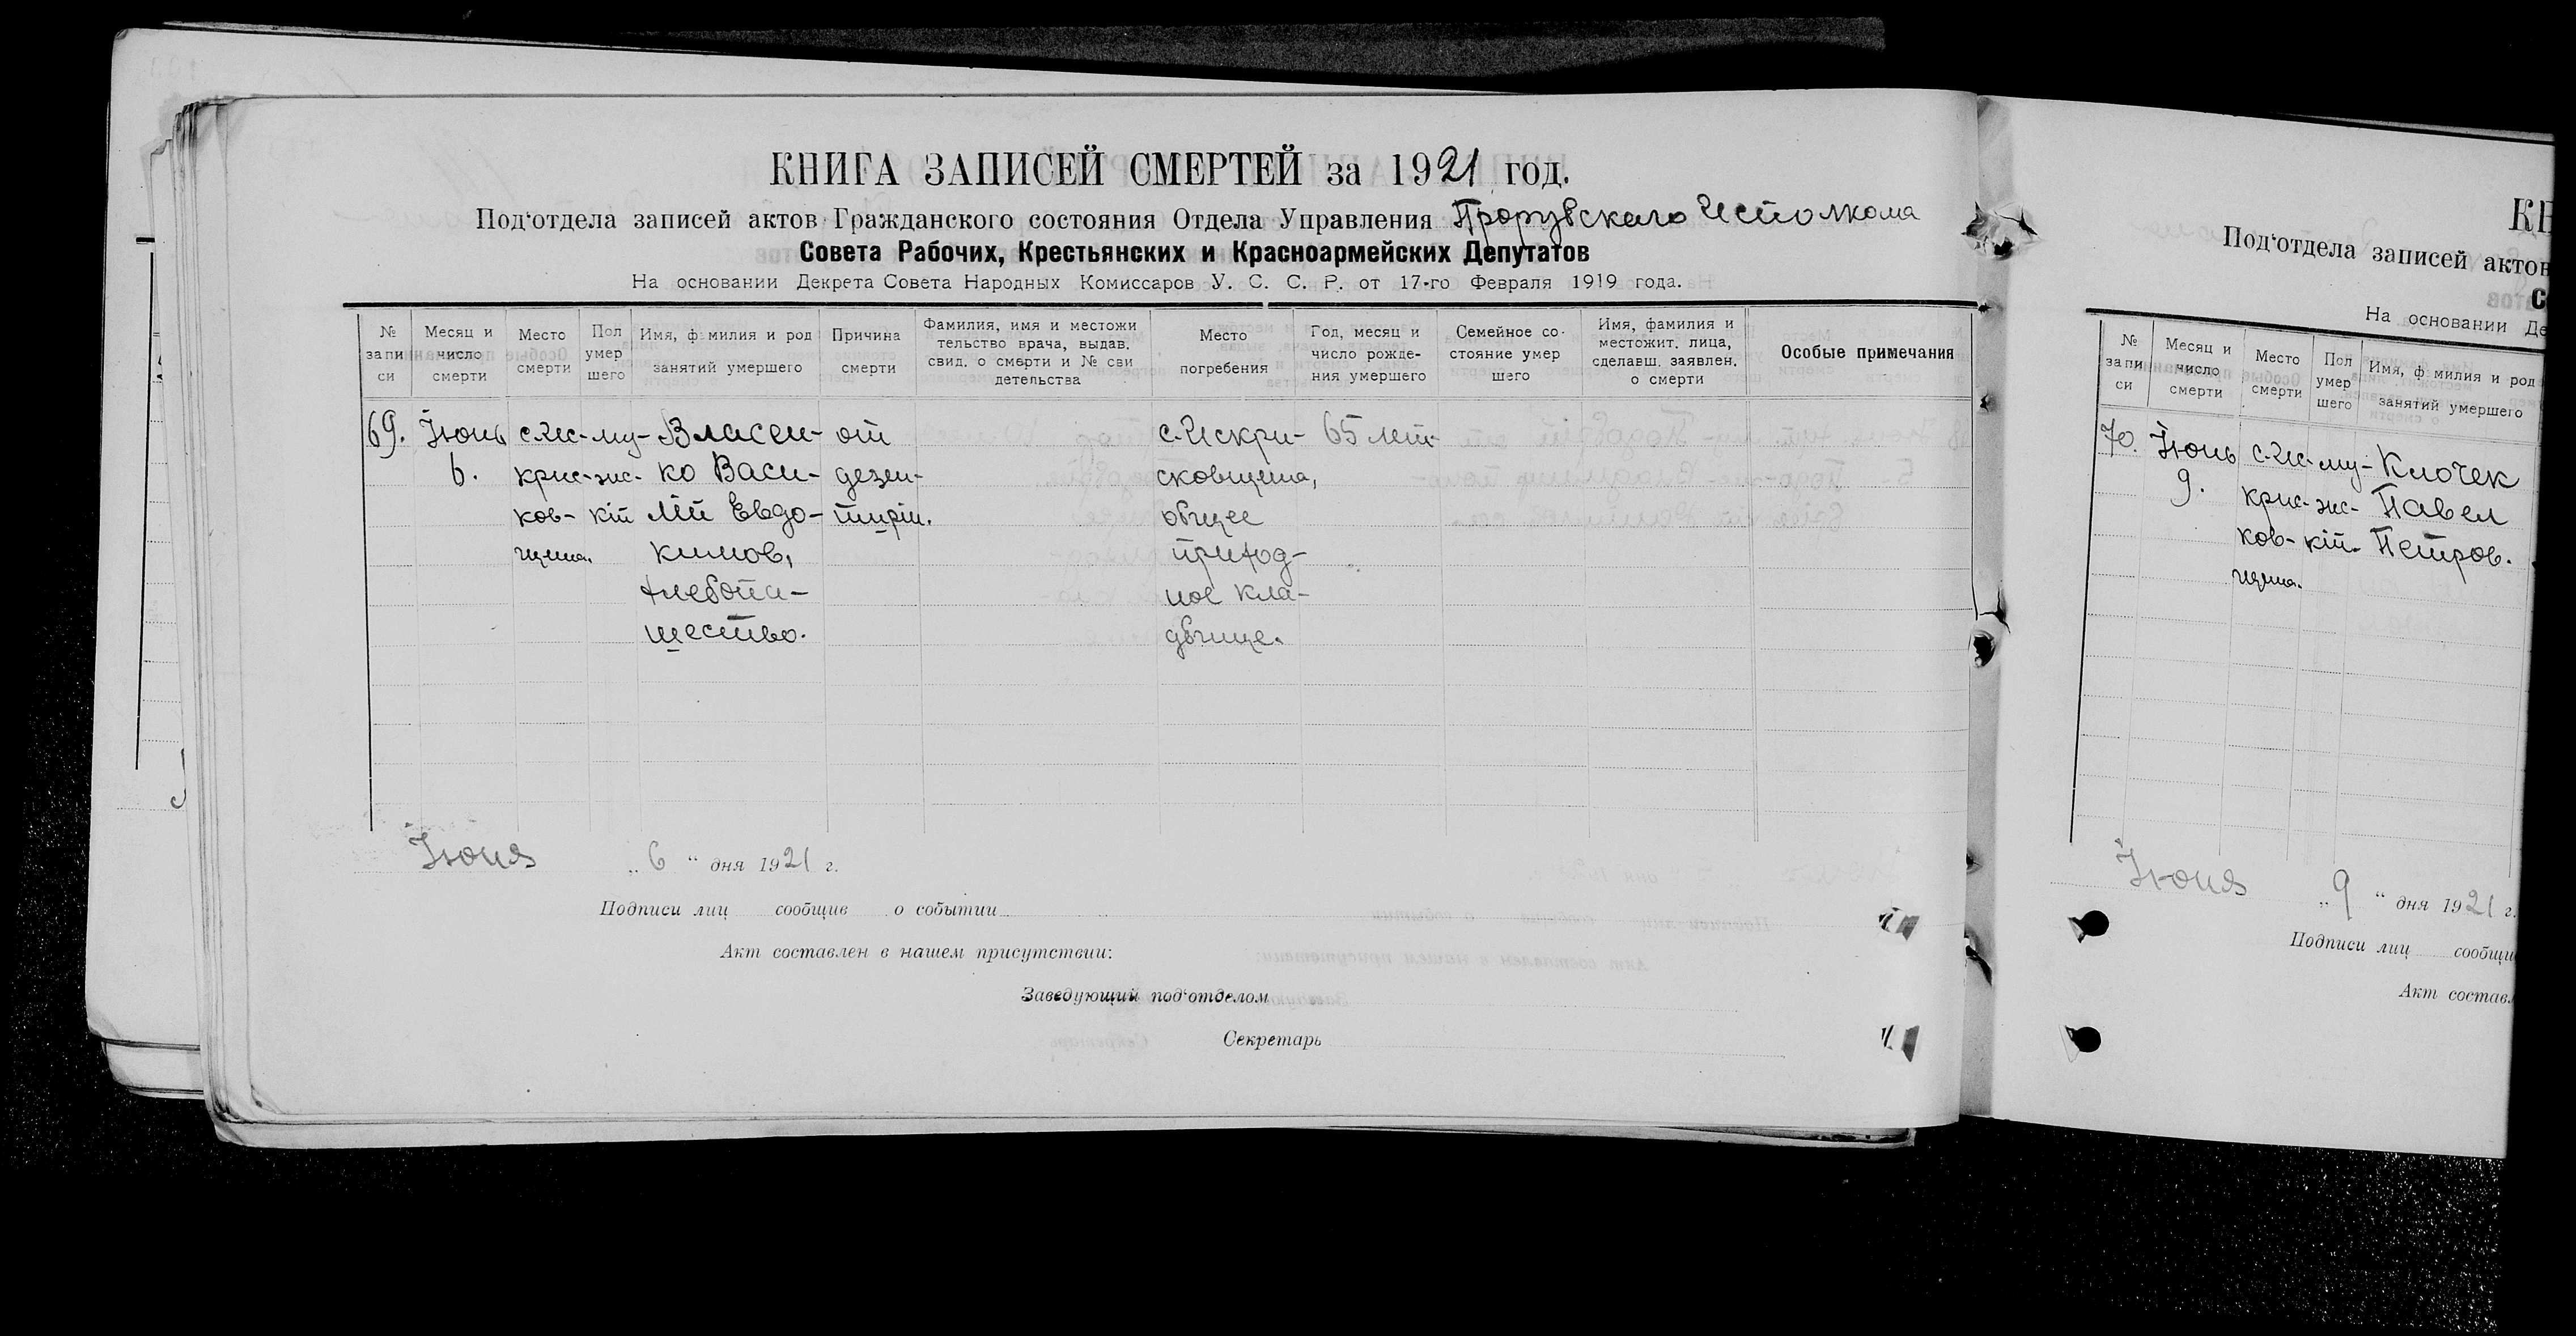 КНИГА ЗАПИСЕЙ СМЕРТЕЙ за 1921 год.
Под‘отдела записей актов Гражданского состояния Отдела Управления Прорувскаго Исполкома
Совета Рабочих, Крестьянских и Красноармейских Депутатов
На основании Декрета Совета Народных Комиссаров У. С. С. Р. от 17-го Февраля 1919 года.
№ запи си
Месяц и число смерти
Место смерти
Пол умер шего
Имя, ф милия и род занятий умершего
Причина смерти
Фамилия, имя и местожи тельство врача, выдав. свид. о смерти и № сви детельства
Место погребения
Год, месяц и число рожде- ния умершего
Семейное со- стояние умер шего
Имя, фамилия и местожит. лица, сделавш. заявлен. о смерти
Особые примечания
69. Іюнь с. Ис- му- Власен- от с. Искри- 65 лет.
6. крис- жс- ко Васи- дезен- сковщина,
ков- кій лій Евдо- тиріи. общее
щина. кимов, приход-
хлебопа- ное кла-
шество. дбище.
Іюня „ 6 “ дня 1921 г.
Подписи лиц сообщив о событии
Акт составлен в нашем присутствии:
Заведующий под‘отделом
Секретарь
КН
Под‘отдела записей актов
С
На основании Де
№ запи си
Месяц и число смерти
Место смерти
Пол умер шего
Имя, ф милия и род занятий умершего
70. Іюнь с. Ис- му- Клочек
9. крис- жс- Павел
ков- кій. Петров.
щина.
Іюня „ 9 “ дня 1921 г.
Подписи лиц сообщи
Акт составл